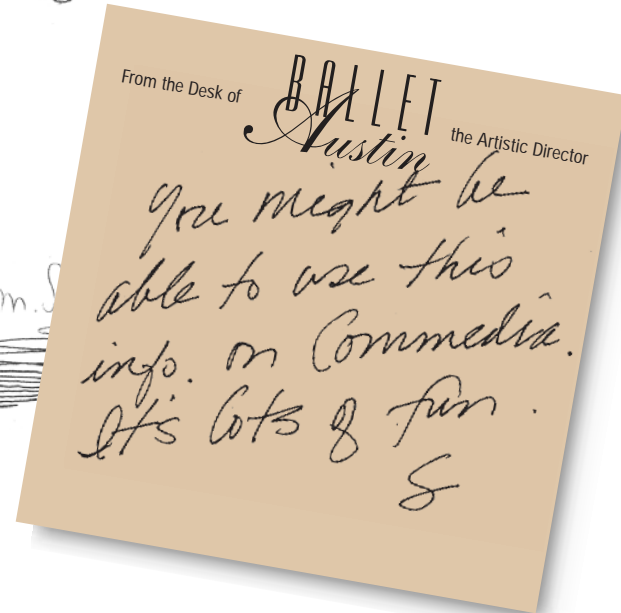 From the Desk of
BALLET
Austin
the Artistic Director
You might be
able to use this
info. on Commedia.
It's lots of fun.
S